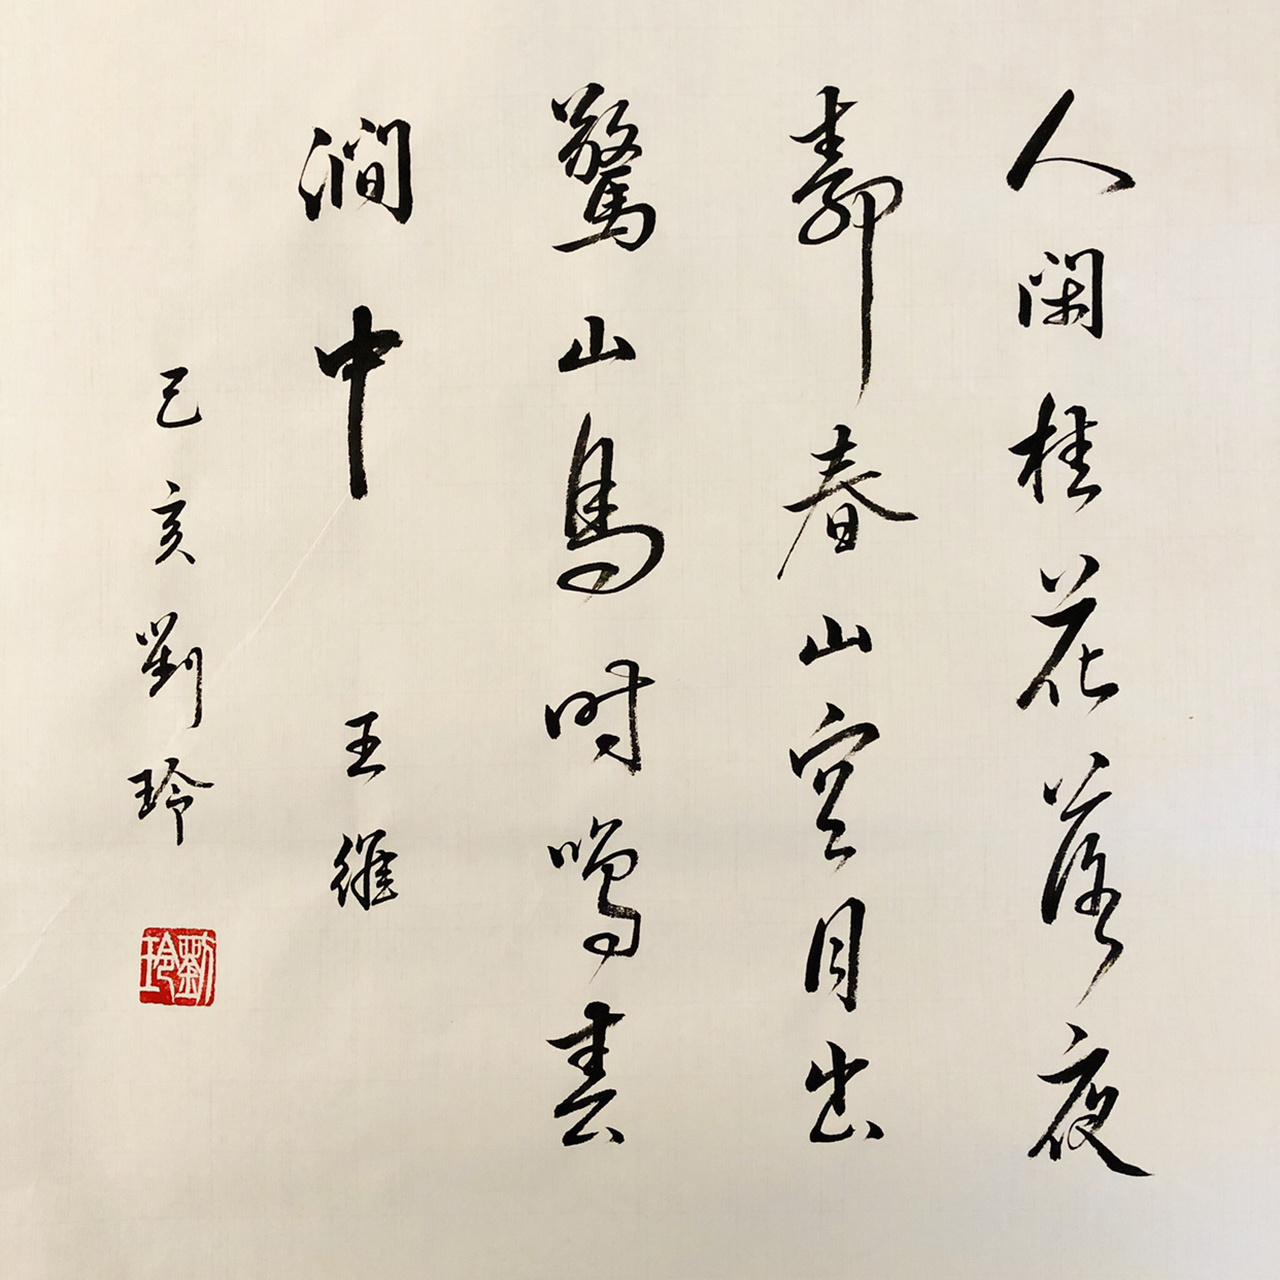 人閑桂花落夜
靜春山空月出
驚山鳥時鳴春
澗中 王維
己亥劉玲
劉玲